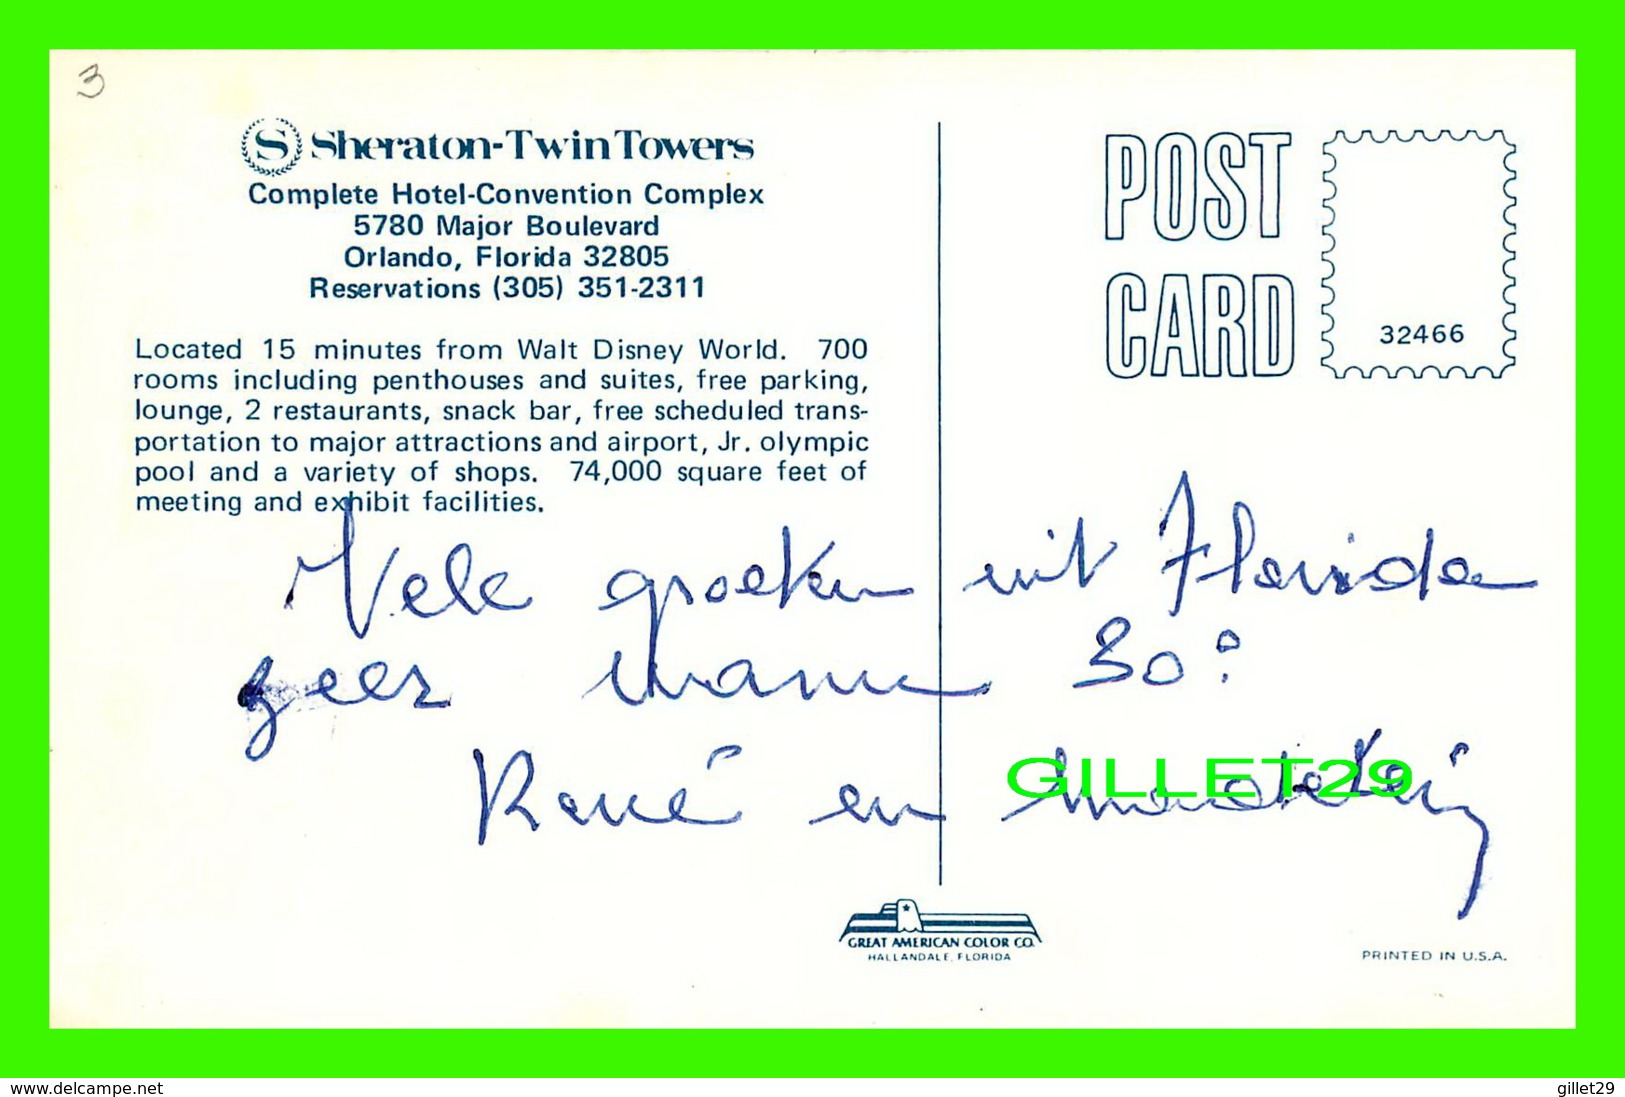 3
Sheraton-Twin Towers
Complete Hotel-Convention Complex
5780 Major Boulevard
Orlando, Florida 32805
Reservations (305) 351-2311
Located 15 minutes from Walt Disney World. 700
rooms including penthouses and suites, free parking,
lounge, 2 restaurants, snack bar, free scheduled trans-
portation to major attractions and airport, Jr. olympic
pool and a variety of shops. 74,000 square feet of
meeting and exhibit facilities.
POST
CARD
32466
Vele groeten uit Florida
zeer warm 30°
René en
GILLET29
GREAT AMERICAN COLOR CO.
HALLANDALE, FLORIDA
PRINTED IN U.S.A.
www.delcampe.net
gillet29